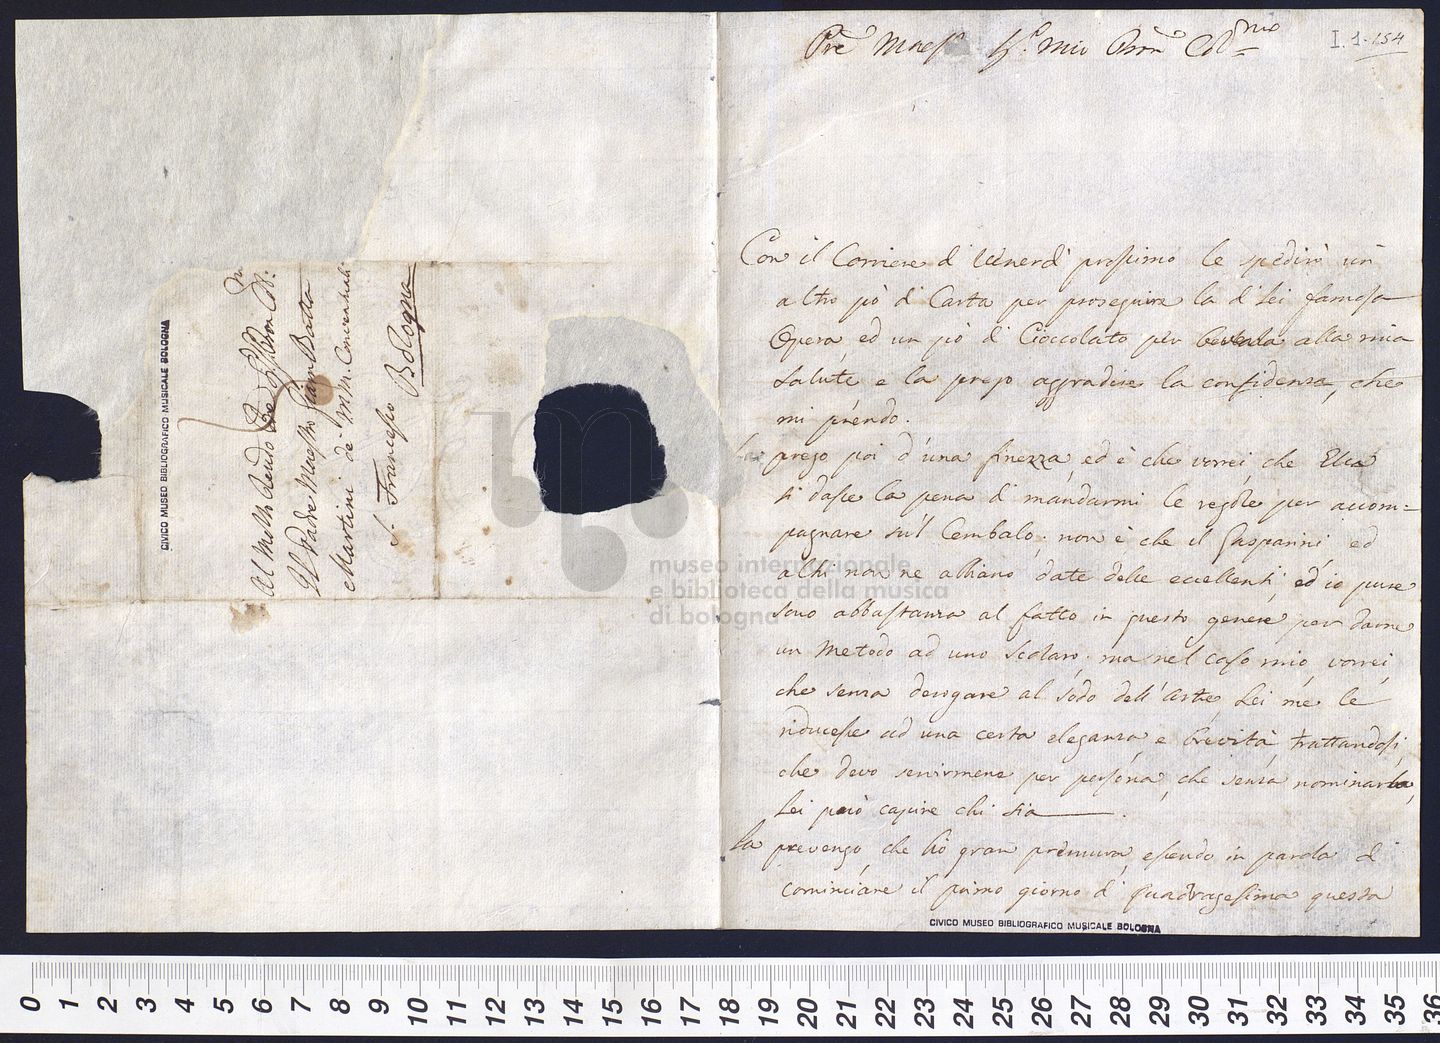 Al Molto Rendo Pre Sig. Pron Col:
Il Padre Maestro Giam Batta
Martini de' M.M. Conventuali
S. Francesco Bologna
CIVICO MUSEO BIBLIOGRAFICO MUSICALE BOLOGNA
I.1.154
Pre Maes Sig. mio Pron Col.mo
Con il Corriere di Venerdì prossimo le spedirò un
altro pò di Carta per proseguire la di Lei famosa
Opera, ed un pò di Cioccolato per beverla alla mia
salute, e la prego aggradire la confidenza, che
mi prendo.
La prego poi d'una finezza, ed è che vorrei che Ella
si dasse la pena di mandarmi le regole per accom=
pagnare sul Cembalo; non è che il Gasparini, ed
altri non ne abbiano date delle eccellenti, ed io pure
sono abbastanza al fatto in questo genere per darne
un Metodo ad uno Scolaro; ma nel caso mio, vorrei
che senza derogare al sodo dell'Arte, Lei me le
riducesse ad una certa eleganza, e brevità, trattandosi,
che devo servirmene per persona, che senza nominarla,
Lei può capire chi sia.
La prevengo che hò gran premura, essendo in parola di
cominciare il primo giorno di Quadragesima questa
CIVICO MUSEO BIBLIOGRAFICO MUSICALE BOLOGNA
museo internazionale
e biblioteca della musica
di bologna
0 1 2 3 4 5 6 7 8 9 10 11 12 13 14 15 16 17 18 19 20 21 22 23 24 25 26 27 28 29 30 31 32 33 34 35 36